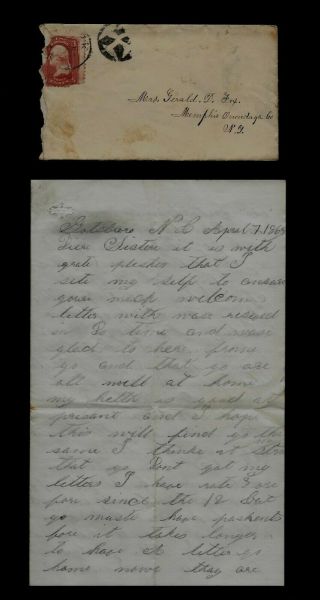 Mrs. Gerald. D. Fox.
Memphis Onondaga Co
N.Y.
N C April 7, 186
Dear Sister it is with
grate plesher that I
sete my self to answer
your much welcom
letter witch was reseved
in time and was
glad to here from
yo and that yo are
all well at home
my helth is good at
presant and I hope
this will find yo the
same I thinke it
that yo dont get my
letters I have rote
fore since the 12
yo must have pashent
fore it takes longer
to have a letter go
home nowe thay are